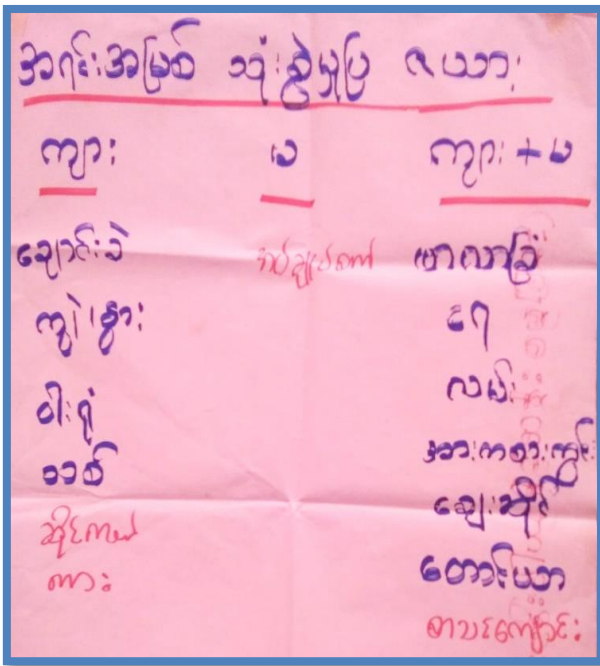 အရင်းအမြစ် သုံးစွဲမှုပြ ဇယား
ကျား မ ကျား + မ
ချောင်းခွဲ အပ်ချုပ်စက် ဗာလာခြံ
ကျွဲ၊ နွား ရေ
ဝါးရုံ လမ်း
သစ် အားကစားကွင်း
ဆိုင်ကယ် ဈေးဆိုင်
ကား တောင်ယာ
စာသင်ကျောင်း